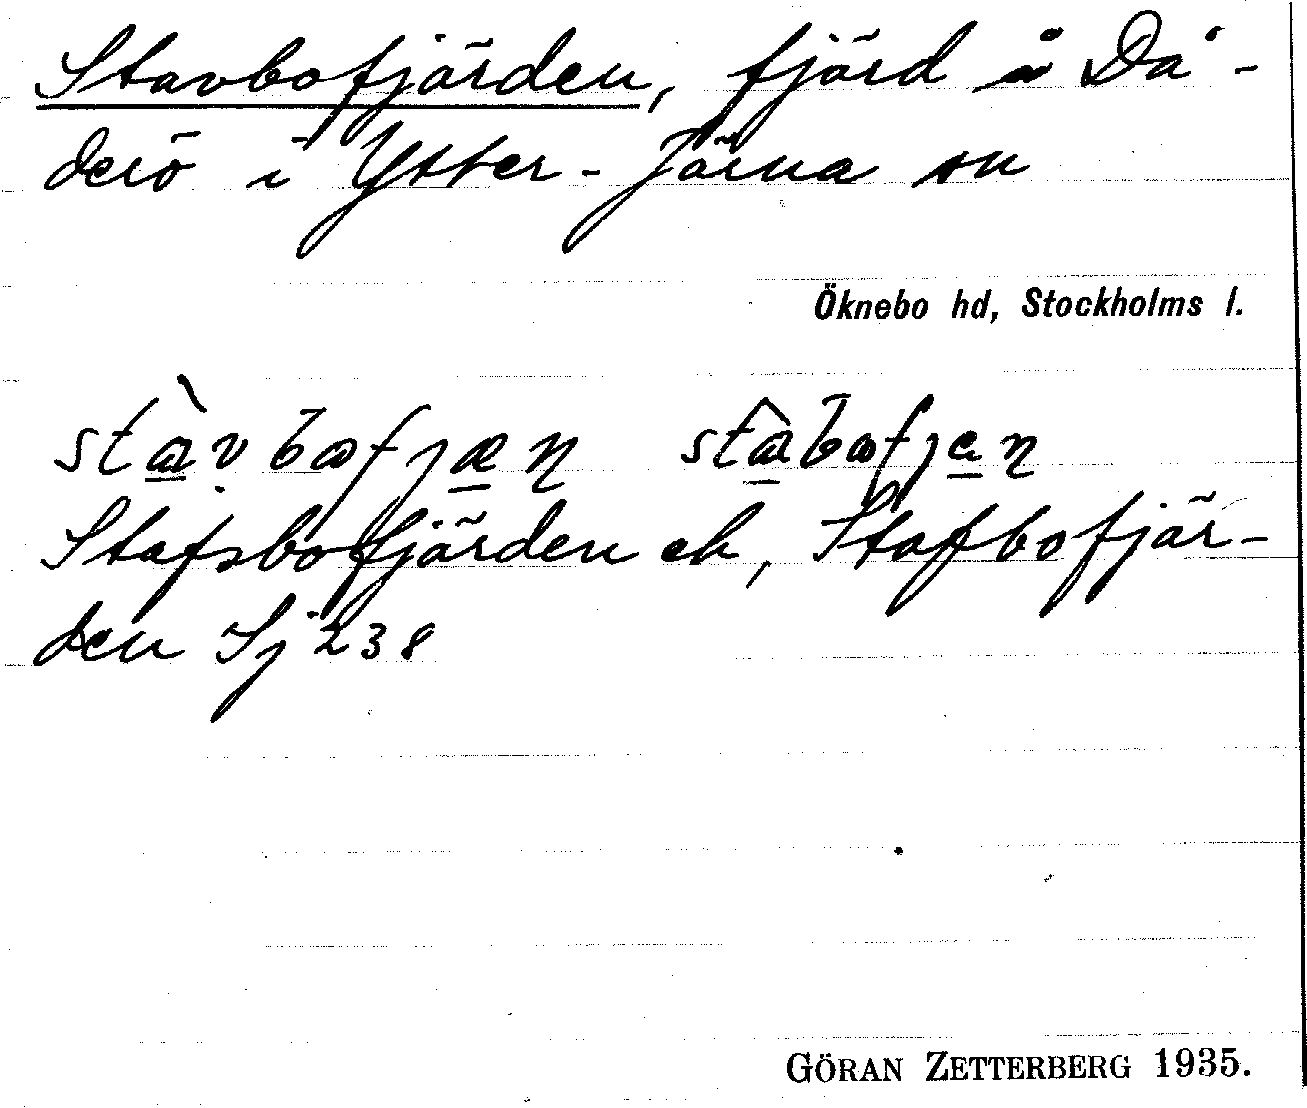 Stavbofjärden, fjärd å Då-
derö i Ytter-Järna sn
Öknebo hd, Stockholms l.
stàvbofjæn stâbofjen
Stafsbofjärden ek, Stafbofjär-
den Sj 238
GÖRAN ZETTERBERG 1935.